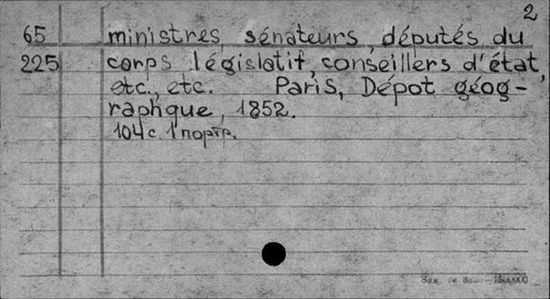 2
65 ministres, sénateurs, députés du
225 corps législatif, conseillers d'état,
etc., etc. Paris, Dépot géog-
raphque, 1852.
104 с. 1 портр.